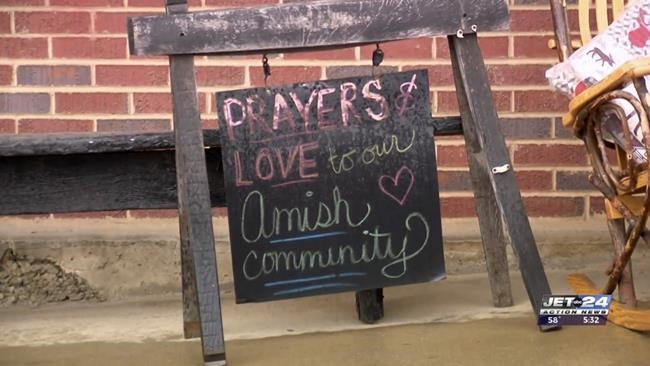 PRAYERS &
LOVE to our
Amish
community
JET abc 24
ACTION NEWS
58° 5:32